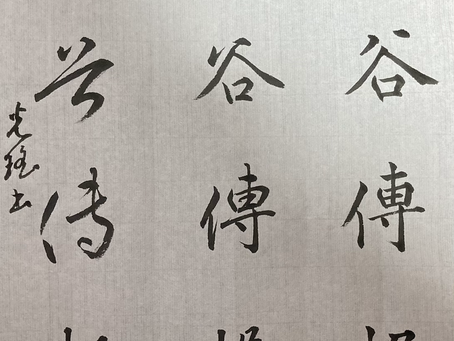 谷傳
谷傳
谷傳
光瑤書